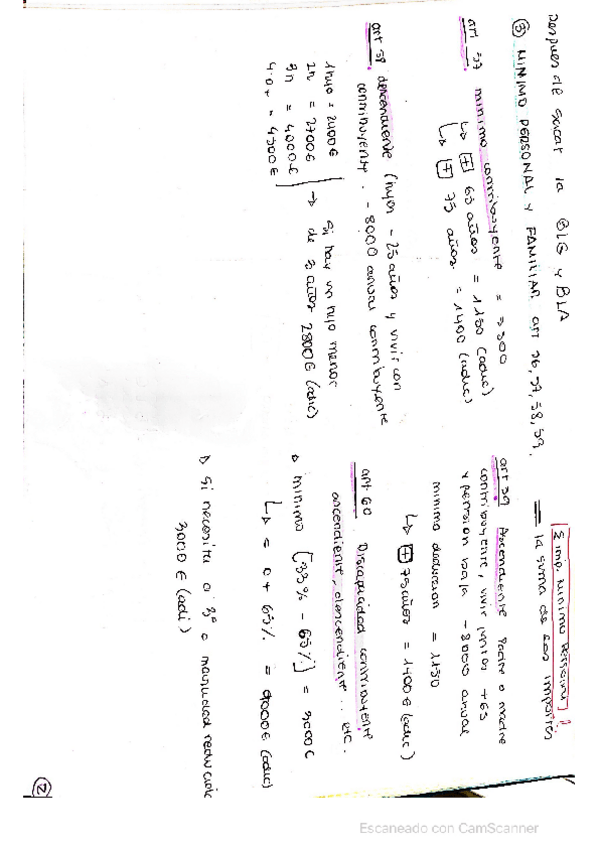 Despues de sacar la BLG y BLA
③ MINIMO PERSONAL Y FAMILIAR. art 56, 57, 58, 59.
art 57 minimo contribuyente = 5500
↳ + 65 años = 1150 (adic)
↳ + 75 años = 1400 (adic)
art 58 descendiente (hijos - 25 años y vivir con
contribuyente. - 8000 anual contribuyente
1 hijo = 2400€
2h = 2700€
3h = 4000€
4 o + = 4500€
→ Si hay un hijo menor
de 3 años 2800€ (adic)
Σ imp. Minimo Personal
= la suma de los importes
art 59 Ascendiente Padre o madre
contribuyente, vivir juntos +65
y pension baja - 8000 anual
minimo deduccion = 1150
↳ + 75 años = 1400€ (adic)
art 60 Discapacidad contribuyente
ascendiente, descendiente... etc.
minimo [33% - 65%] = 3000€
↳ = o + 65% = 9000€ (adic)
Si necesita a 3ª o movilidad reducida
3000€ (adi)
②
Escaneado con CamScanner